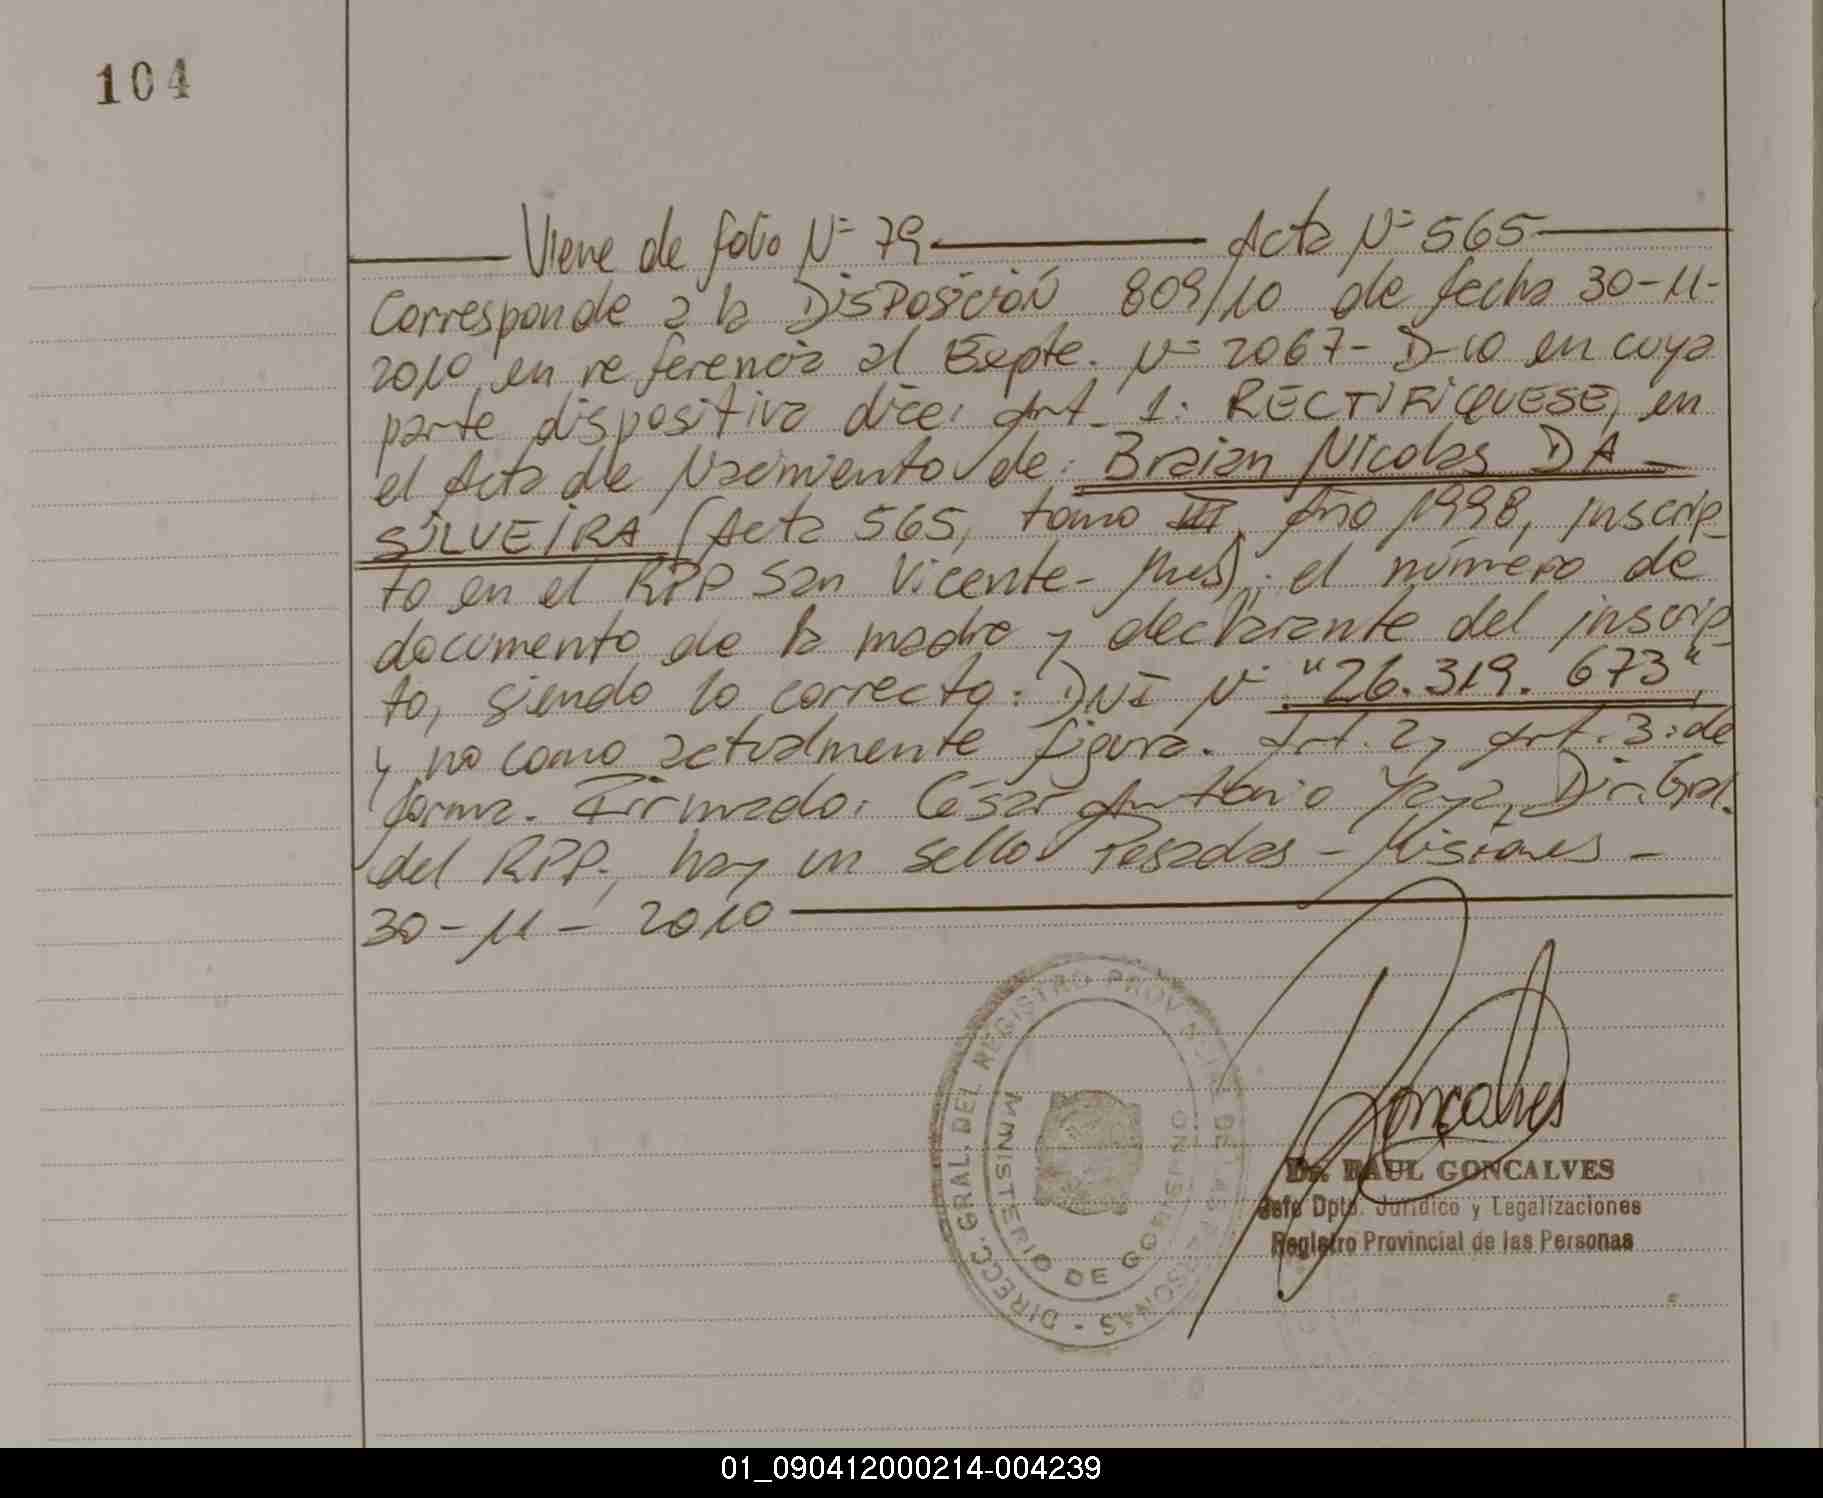 104
Viene de folio Nº 79 Acta Nº 565
Corresponde a la DISPOSICIÓN 809/10 de fecha 30-11-
2010 en referencia al Expte. Nº 2067-D-10 en cuya
parte dispositiva dice: Art. 1: RECTIFIQUESE, en
el Acta de Nacimiento de: Braian Nicolas DA
SILVEIRA (Acta 565, tomo III, Año 1998, inscrip
to en el RPP San Vicente- Mnes): el número de
documento de la madre y declarante del inscrip
to, siendo lo correcto: DNI Nº "26.319.673",
y no como actualmente figura. Art. 2 y Art. 3: de
forma. Firmado: César Antonio Yaya, Dir. Gral.
del RPP., hay un sello Posadas - Misiones -
30-11-2010
DIRECC. GRAL. DEL REGISTRO PROVINCIAL DE LAS PERSONAS -
MINISTERIO DE GOBIERNO
Goncalves
Dr. RAUL GONCALVES
Jefe Dpto. Jurídico y Legalizaciones
Registro Provincial de las Personas
01_090412000214-004239